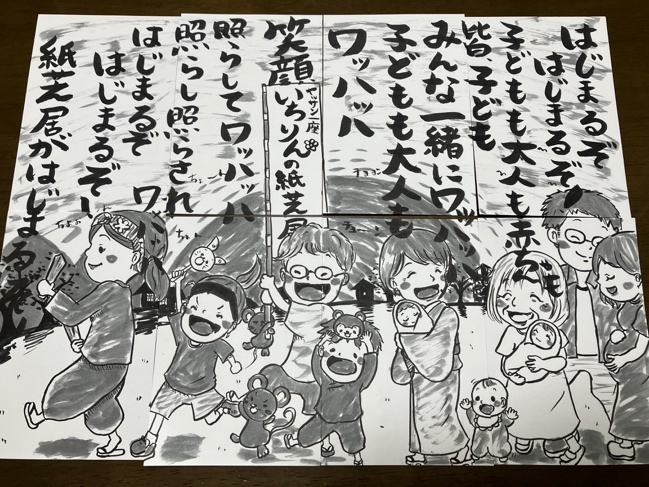 はじまるぞ
はじまるぞ!
子どもも大人も
皆子ども
みんな一緒にワッハッハ
子どもも大人も
ワッハッハ
ヤッサン一座
いちりんの紙芝居
笑顔
照らしてワッハッハ
照らし照らされ
はじまるぞ
はじまるぞー!
紙芝居がはじまるぞー!